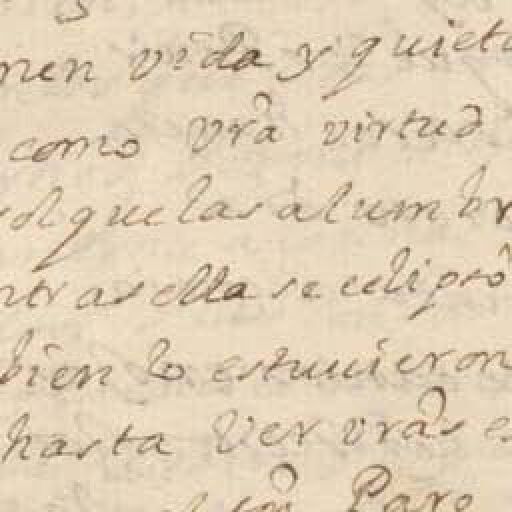 nen vida y quieta
como vrã virtud
sol que las alumbr
ntras ella se eclipsò
bien lo estuuieron
hasta ver vrãs es
Paro